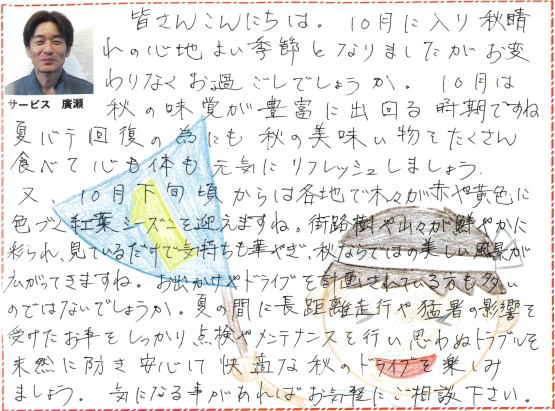 皆さんこんにちは。10月に入り秋晴
れの心地よい季節となりましたがお変
わりなくお過ごしでしょうか。10月は
サービス 廣瀬
秋の味覚が豊富に出回る時期ですね
夏バテ回復の為にも秋の美味い物をたくさん
食べて心も体も元気にリフレッシュしましょう.
又、10月下旬頃からは各地で木々が赤や黄色に
色づく紅葉シーズンを迎えますね。街路樹や山々が鮮やかに
彩られ、見ているだけで気持ちも華やぎ、秋ならではの美しい風景が
広がってきますね。お出かけやドライブを計画されている方も多い
のではないでしょうか。夏の間に長距離走行や猛暑の影響を
受けたお車をしっかり点検やメンテナンスを行い思わぬトラブルを
未然に防ぎ安心して快適な秋のドライブを楽しみ
ましょう。気になる事があればお気軽にご相談下さい。